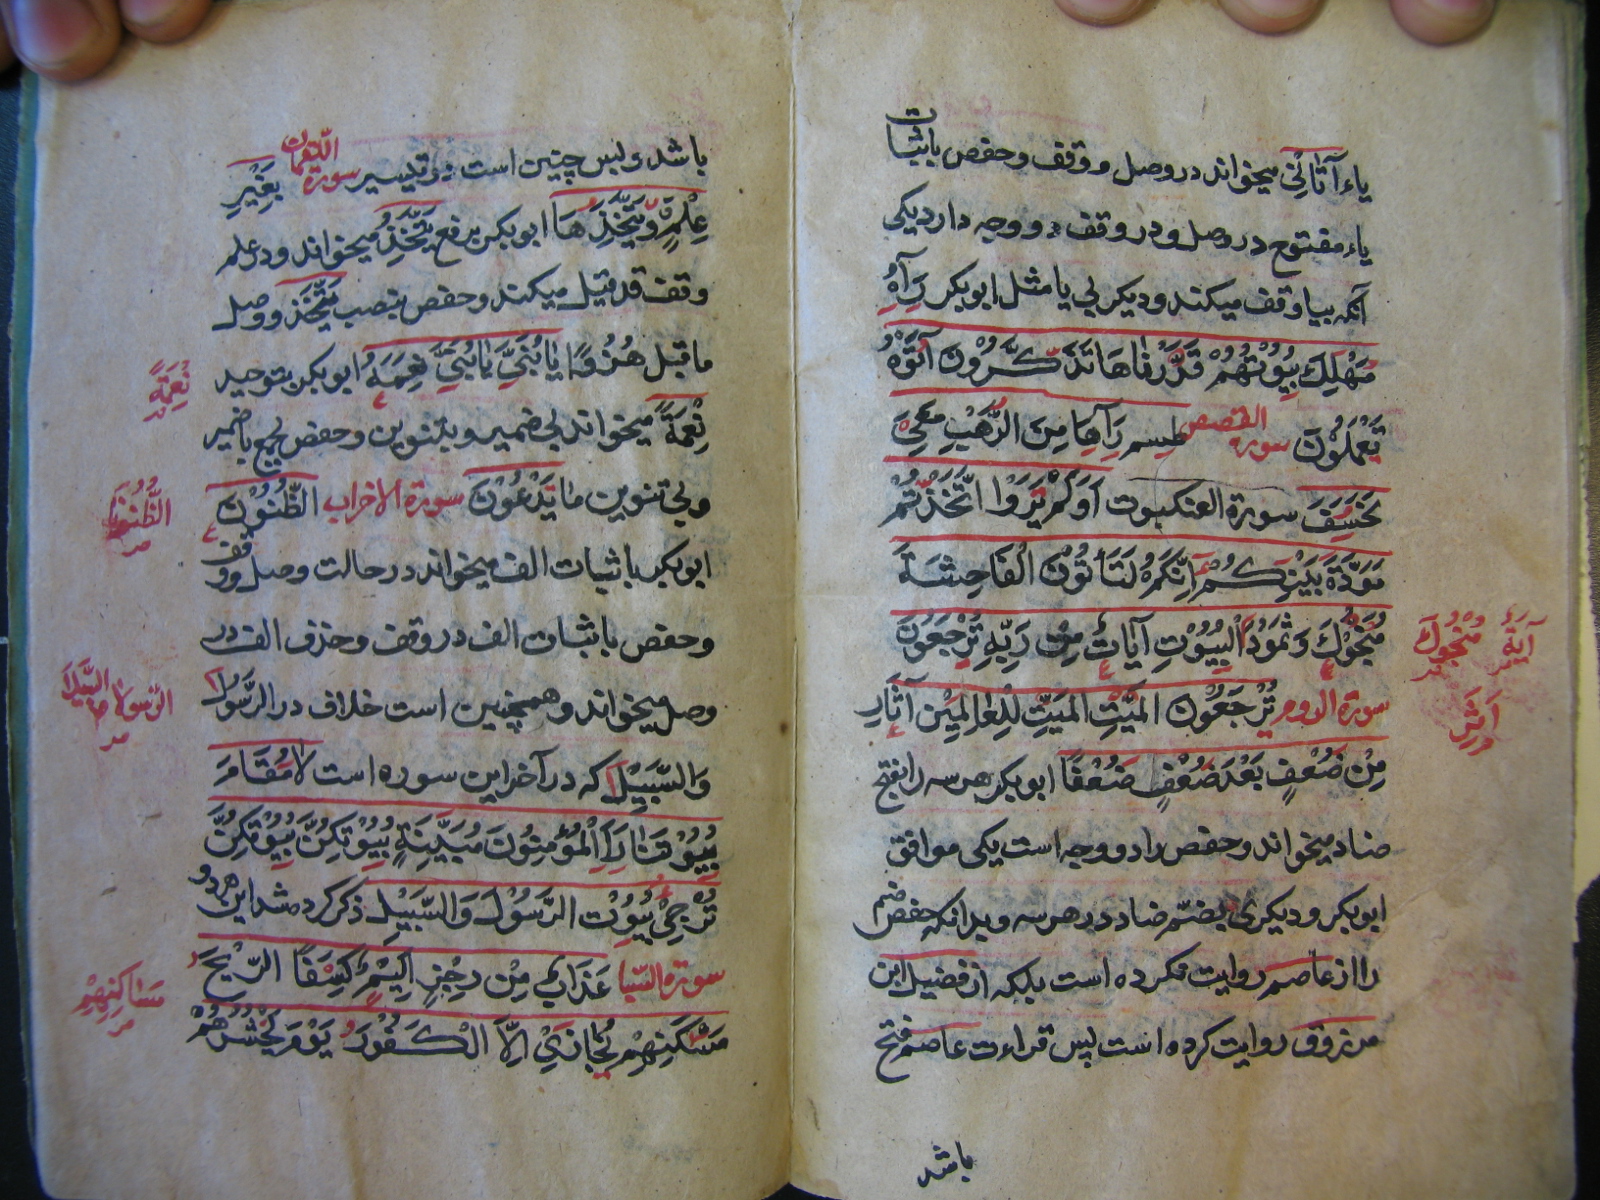 یاء آتَانِیَ میخواند در وصل و وقف و حفص باثبات
یاء مفتوح در وصل و در وقف دو وجه دارد یکی
آنکه بیا وقف میکند و دیگر بی یا مثل ابوبکر رَآهُ
مَهْلِكَ بِيُوْتُهُمْ قَدَرْنَاهَا تَذَكَّرُوْنَ آتُوْهُ
يَعْمَلُوْنَ سورة القصص طسم رَآهَا مِنَ الرُّهْبِ مَعِيَ
لَخَسَفَ سورة العنكبوت اَوَلَمْ تَرَوْا اتَّخَذْتُمْ
مَوَدَّةَ بَيْنِكُمْ اِنَّكُمْ لَتَأْتُوْنَ الْفَاحِشَةَ
مُنْجُوْكَ وَثَمُوْدًا الْبِيُوْتِ آيَاتٌ مِنْ رَبِّهِ تُرْجَعُوْنَ
سورة الروم تُرْجَعُوْنَ الْمَيِّتِ الْمَيِّتِ لِلْعَالِمِيْنَ آثَارِ
مِنْ ضُعْفٍ بَعْدَ ضُعْفٍ ضُعْفًا ابوبکر هر سه را بفتح
ضاد میخواند و حفص را دو وجه است یکی موافق
ابوبکر و دیگری بضم ضاد در هر سه و بدانکه حفص ضم
را از عاصم روایت نکرده است بلکه از فضیل ابن
مرزوق روایت کرده است پس قراءت عاصم فتح
باشد
آيَةٌ مُنْجُوْكَ
اَثَرِ
باشد و بس چنین است در تیسیر سورة اللقمان بِغَيْرِ
عِلْمٍ وَيَتَّخِذَهَا ابوبکر برفع يَتَّخِذُ میخواند و در علم
وقف قد قیل میکند و حفص بنصب يَتَّخِذَ و وصل
ما قبل هُزُوًا يَابُنَيَّ يَابُنَيَّ نِعَمَهُ ابوبکر بتوحید
نِعْمَةً میخواند بی ضمیر و بتنوین و حفص بجمع با ضمیر
و بی تنوین مَا يَدْعُوْنَ سورة الاحزاب الظُّنُوْنَ
ابوبکر باثبات الف میخواند در حالت وصل و وقف
و حفص باثبات الف در وقف و حذف الف در
وصل میخواند و همچنین است خلاف در الرَّسُوْلَا
وَالسَّبِيْلَا که در آخر این سوره است لَا مُقَامَ
بِيُوْتَنَا رَاَ الْمُؤْمِنُوْنَ مُبَيَّنَةٍ بِيُوْتِكُنَّ بِيُوْتِكُنَّ
تُرْجِئُ بِيُوْتَ الرَّسُوْلَ وَالسَّبِيْلَ ذکر کرده شد این هر دو
سورة السبا عَذَابٌ مِنْ رِجْزٍ اَلِيْمٌ كِسَفًا الرِّيْحَ
مَسْكَنِهِمْ نُجَازِيْ اِلَّا الْكَفُوْرَ يَوْمَ يَحْشُرُهُمْ
نِعْمَةً
الظُّنُوْنَا
الرسولا السبيلا
مَسَاكِنِهِمْ